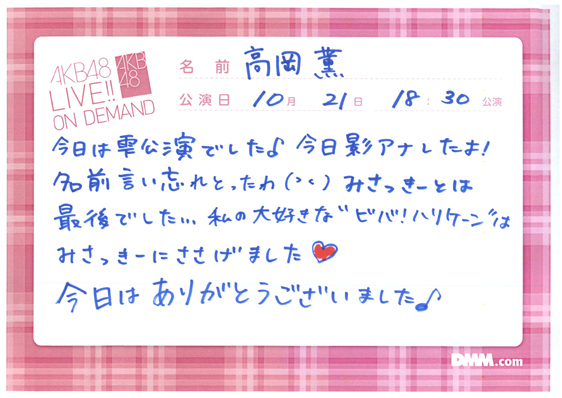 AKB48
LIVE!!
ON DEMAND
AKB
48
名前 高岡 薫
公演日 10月 21日 18:30 公演
今日は雫公演でした♪ 今日影アナしたよ!
名前言い忘れとったわ(>< ) みさっきーとは
最後でした... 私の大好きな"ビバ!ハリケーン"は
みさっきーにささげました♥
今日は ありがとうございました♪
DMM.com